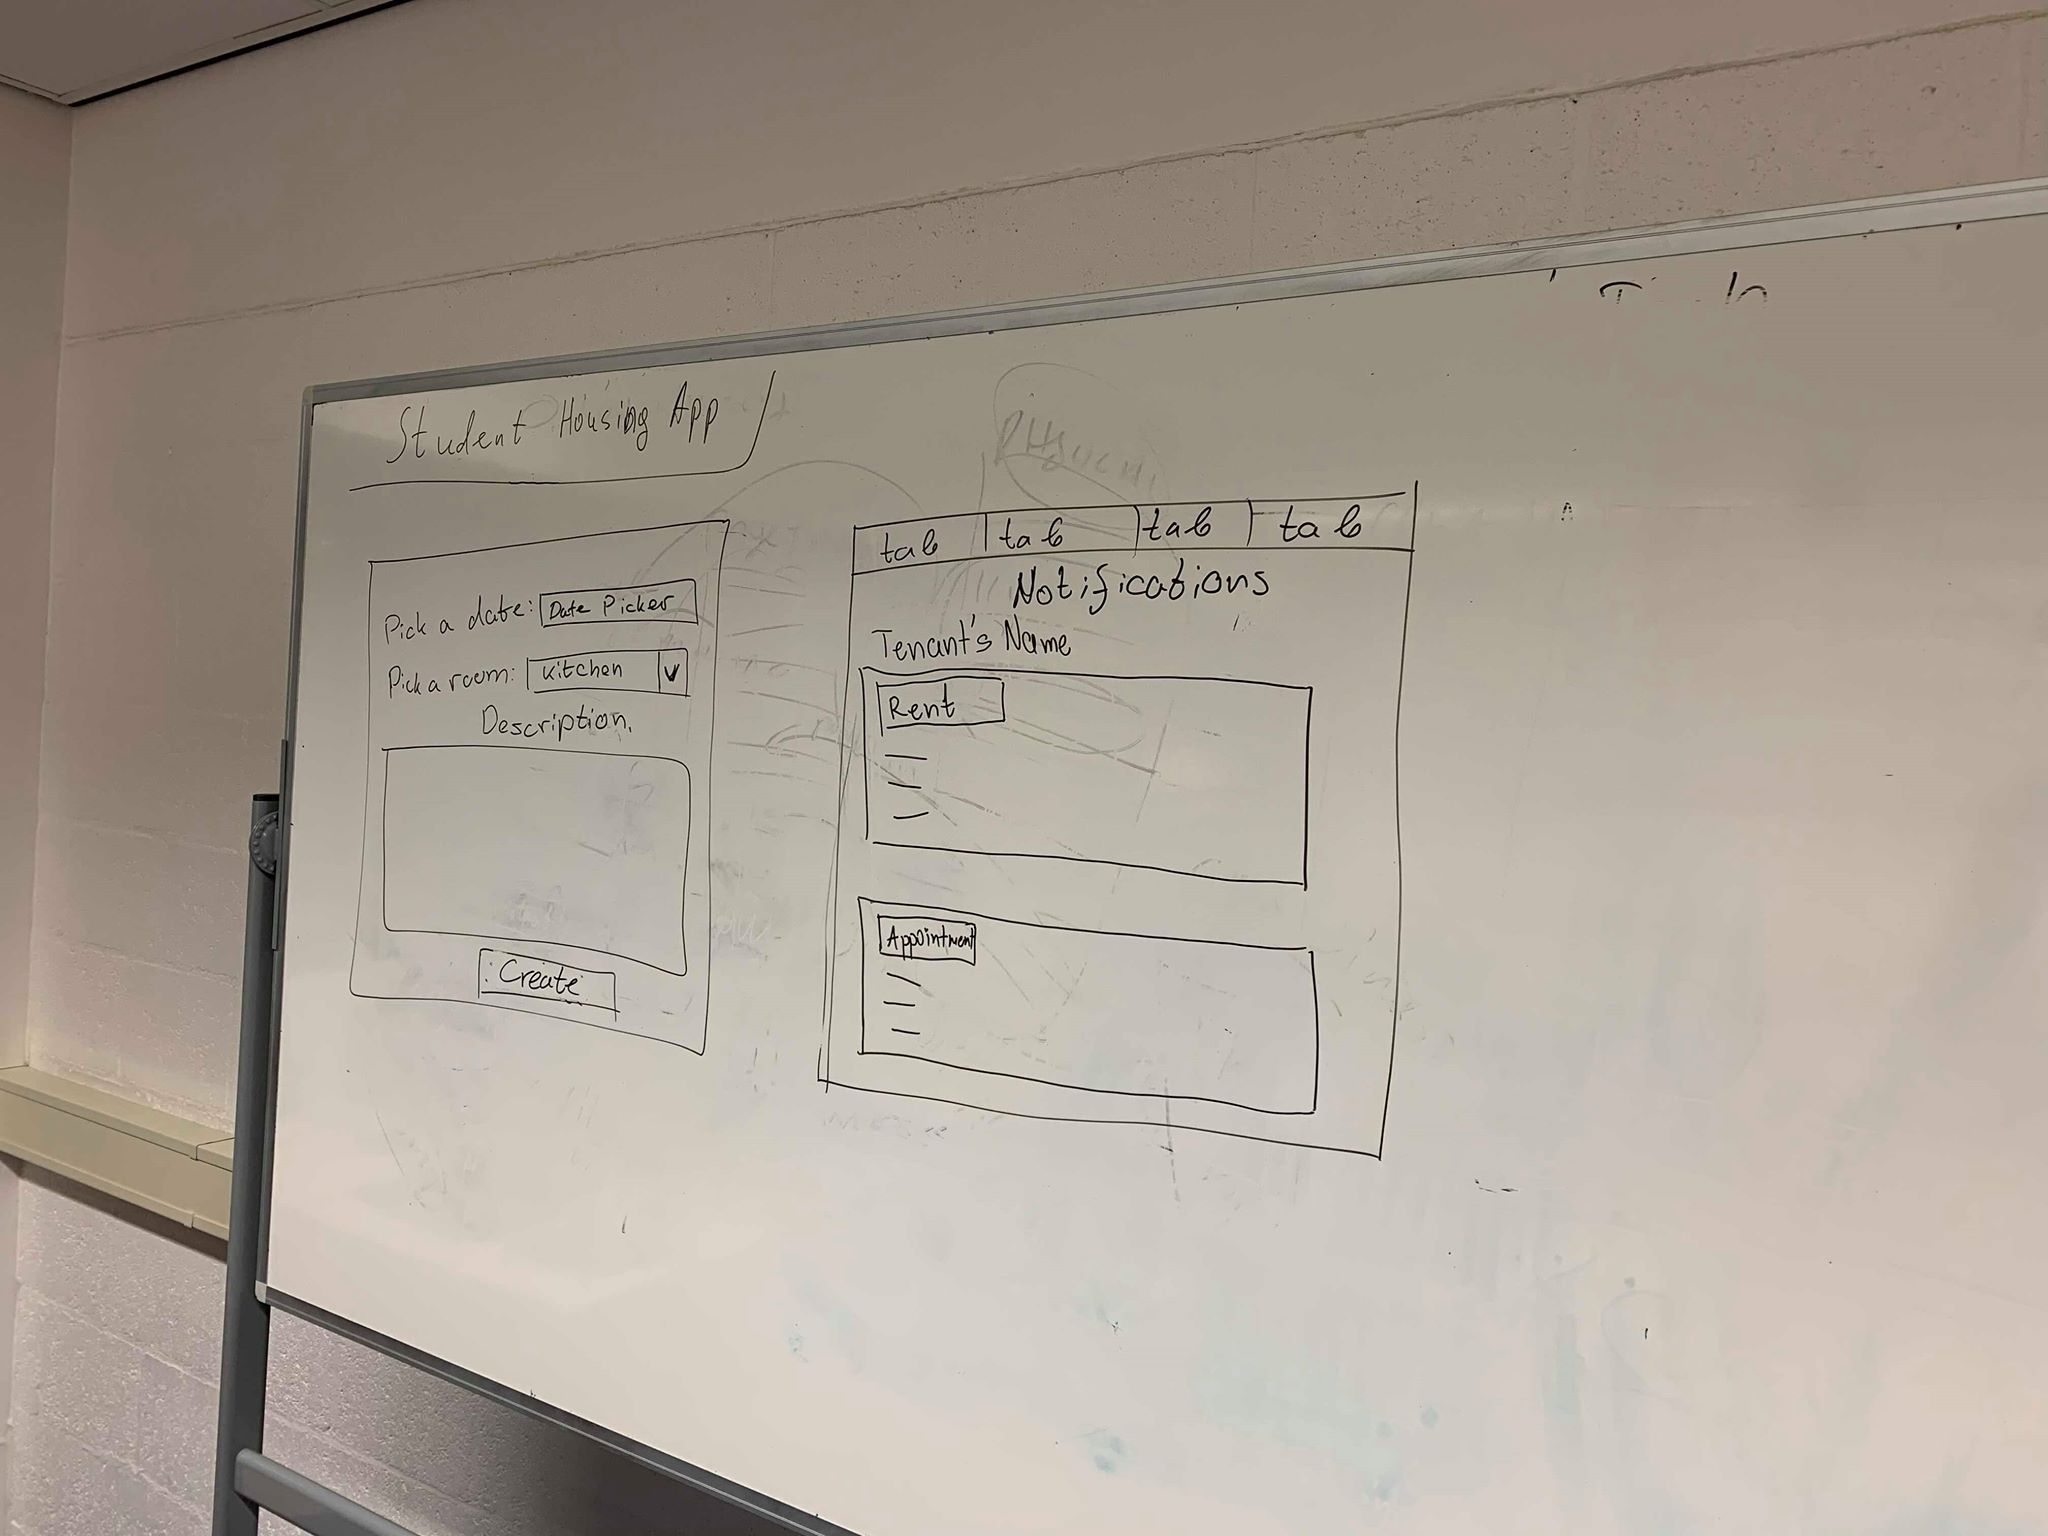 Student Housing App
Pick a date: Date Picker
Pick a room: Kitchen
Description.
Create
tab tab tab tab
Notifications
Tenant's Name
Rent
Appointment